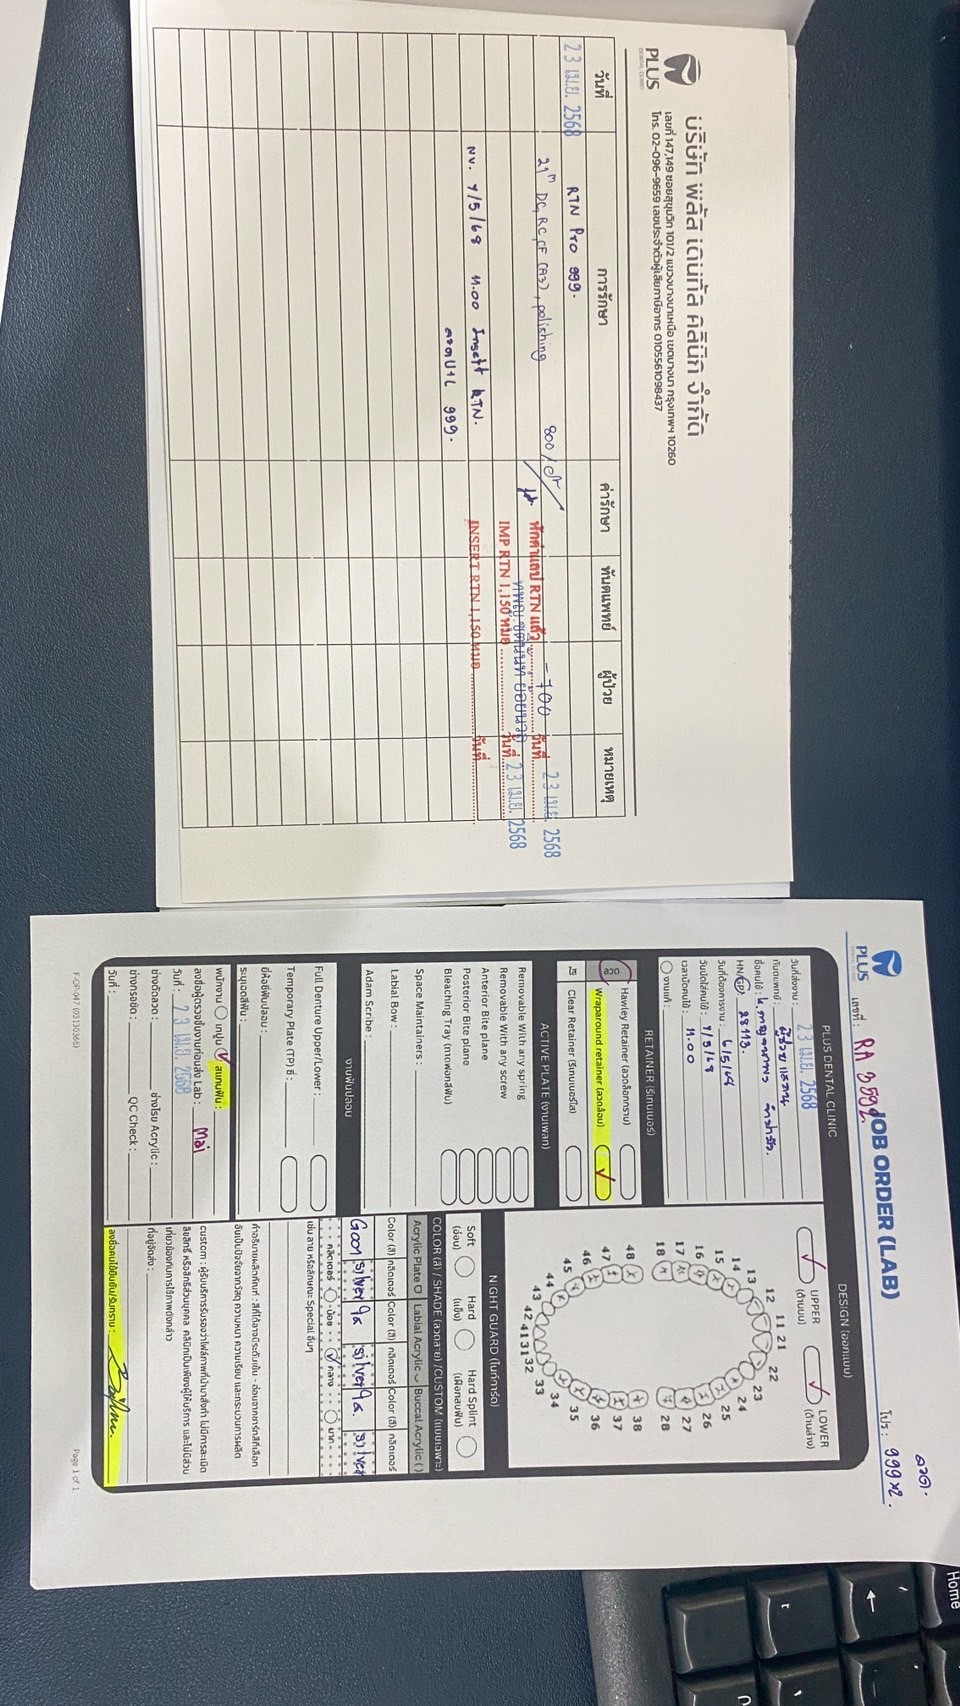 PLUS
DENTAL CLINIC
บริษัท พลัส เดนทัล คลินิก จำกัด
เลขที่ 147,149 ซอยสุขุมวิท 101/2 แขวงบางนาเหนือ เขตบางนา กรุงเทพฯ 10260
โทร. 02-096-9659 เลขประจำตัวผู้เสียภาษีอากร 0105561098437
วันที่ การรักษา ค่ารักษา ทันตแพทย์ ผู้ป่วย หมายเหตุ
23 เม.ย. 2568 RTN Pro 999.
21 DC, RC, CF (A3), polishing 800
หักค่าแถม RTN แล้ว -700 วันที่ 23 เม.ย. 2568
IMP RTN 1,150 หมอ วันที่ 23 เม.ย. 2568
NV. 7/5/68 11.00 Insert RTN.
INSERT RTN 1,150 หมอ วันที่
ลวด U+L 999.
ลวด.
PLUS เลขที่ : RA 3592 JOB ORDER (LAB) โปร : 999x2.
PLUS DENTAL CLINIC
วันที่ส่งงาน : 23 เม.ย. 2568
ทันตแพทย์ :
ชื่อคนไข้ :
HN/GD. 28113.
วันที่ต้องการงาน : 6/5/68
วันนัดใส่คนไข้ : 7/5/68
เวลานัดคนไข้ : 11.00
งานแก้ :
RETAINER (รีเทนเนอร์)
ลวด Hawley Retainer (ลวดล็อกกราม)
Wraparound retainer (ลวดล้อม)
ใส Clear Retainer (รีเทนเนอร์ใส)
ACTIVE PLATE (งานเพลท)
Removable With any spring
Removable With any screw
Anterior Bite plane
Posterior Bite plane
Bleaching Tray (ถาดฟอกสีฟัน)
Space Maintainers :
Labial Bow :
Adam Scribe :
งานฟันปลอม
Full Denture Upper/Lower :
Temporary Plate (TP) ซี่ :
ยี่ห้อซี่ฟันปลอม :
ระบุเฉดสีฟัน :
พนักงาน เทปูน สแกนฟัน :
ลงชื่อผู้ตรวจชิ้นงานก่อนส่ง Lab : Mai
วันที่ : 23 เม.ย. 2568
ช่างดัดลวด : ช่างโรย Acrylic :
ช่างกรอขัด : QC Check :
วันที่ :
DESIGN (ออกแบบ)
UPPER (ด้านบน) LOWER (ด้านล่าง)
18 17 16 15 14 13 12 11 21 22 23 24 25 26 27 28
48 47 46 45 44 43 42 41 31 32 33 34 35 36 37 38
NIGHT GUARD (ไนท์การ์ด)
Soft (อ่อน) Hard (แข็ง) Hard Splint (เฝือกสบฟัน)
COLOR (สี) / SHADE (ลวดลาย) /CUSTOM (แบบเฉพาะ)
Acrylic Plate Labial Acrylic Buccal Acrylic ( )
Color (สี) กลิตเตอร์ Color (สี) กลิตเตอร์ Color (สี) กลิตเตอร์
G001 silver ใส silver ใส. silver
กลิตเตอร์ น้อย กลาง มาก
เช่น ลาย หรือลักษณะ Special อื่นๆ
คำอธิบายผลิตภัณฑ์ : สีที่ได้อาจมีระดับเข้ม - อ่อนจากชาร์ทสีที่เลือก
อันเป็นปัจจัยจากวัสดุ ความหนา ความเรียบ และกระบวนการผลิต
custom : ผู้รับบริการรับรองว่าไฟล์ภาพที่นำมาสั่งทำ ไม่มีการละเมิด
ลิขสิทธิ์ หรือสิทธิส่วนบุคคล คลินิกเป็นเพียงผู้ให้บริการ และไม่มีส่วน
เกี่ยวข้องกับการใช้ภาพดังกล่าว
ที่อยู่จัดส่ง :
ลงชื่อคนไข้ยืนยัน/รับทราบ :
F-OP-047 (03130365) Page 1 of 1
Home